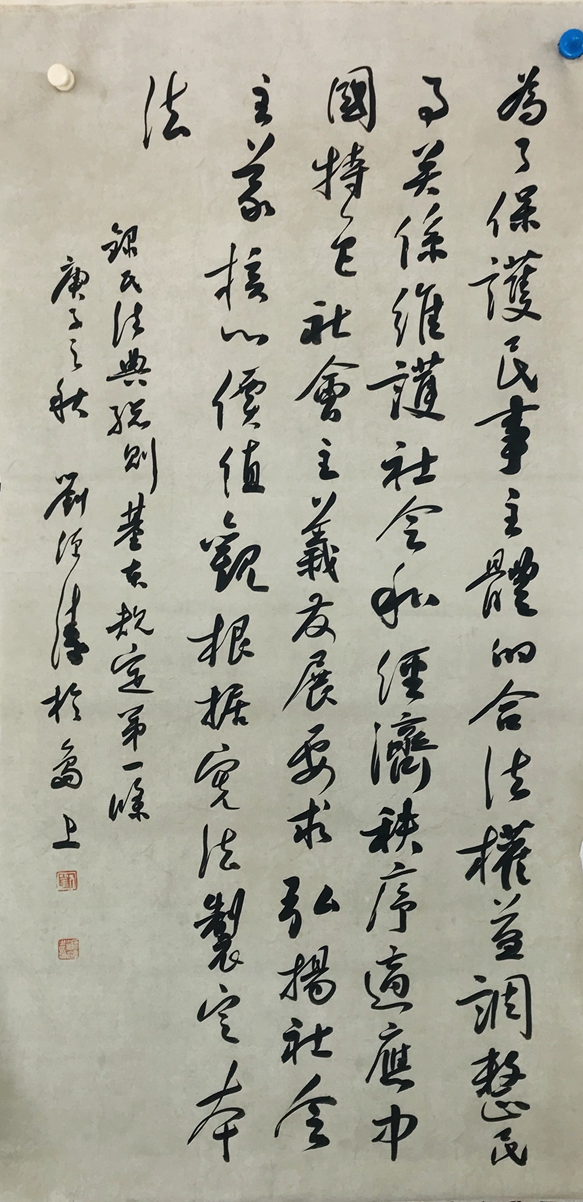 為了保護民事主體的合法權益調整民
事关係維護社会和經濟秩序適應中
國特色社會主義发展要求弘揚社会
主義核心價值觀根据宪法製定本
法
錄民法典總則基本規定第一條
庚子之秋 劉濤於島上